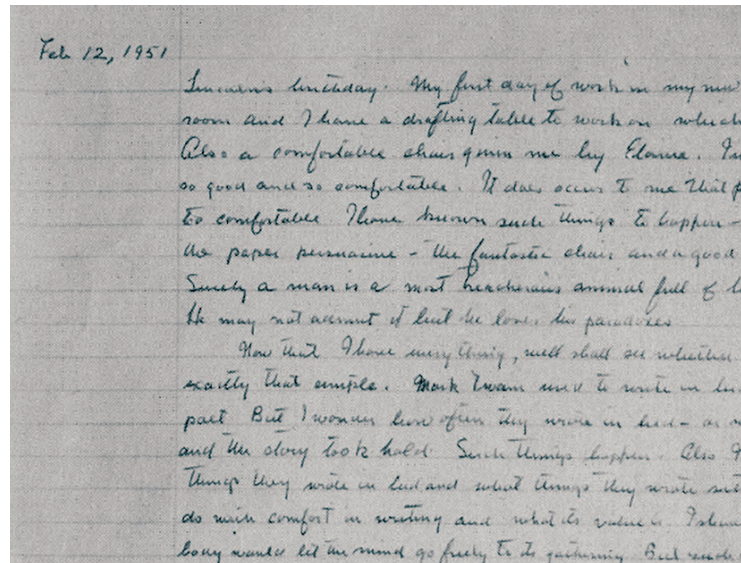 Feb 12, 1951
Lincoln's birthday. My first day of work in my new
room and I have a drafting table to work on which
Also a comfortable chair given me by Elaine. In
so good and so comfortable. It does occur to me that
to comfortable I have known such things to happen -
the paper persuasive - the fantastic chair and a good
Surely a man is a most treacherous animal full of
He may not admit it but he loves his paradoxes
Now that I have everything, well shall see whether
exactly that simple. Mark Twain used to write in bed
poet But I wonder how often they wrote in bed - or
and the story took hold Such things happen. Also
things they wrote in bed and what things they wrote
do with comfort in writing and what its value is. I should
body would let the mind go freely to its gathering. But such